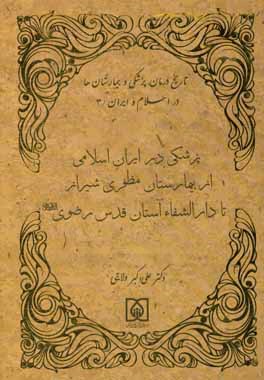 تاریخ درمان پزشکی و بیمارستان ها
در اسلام و ایران /۳
پزشکی در ایران اسلامی
از بیمارستان مظفری شیراز
تا دارالشفاء آستان قدس رضوی
دکتر علی اکبر ولایتی